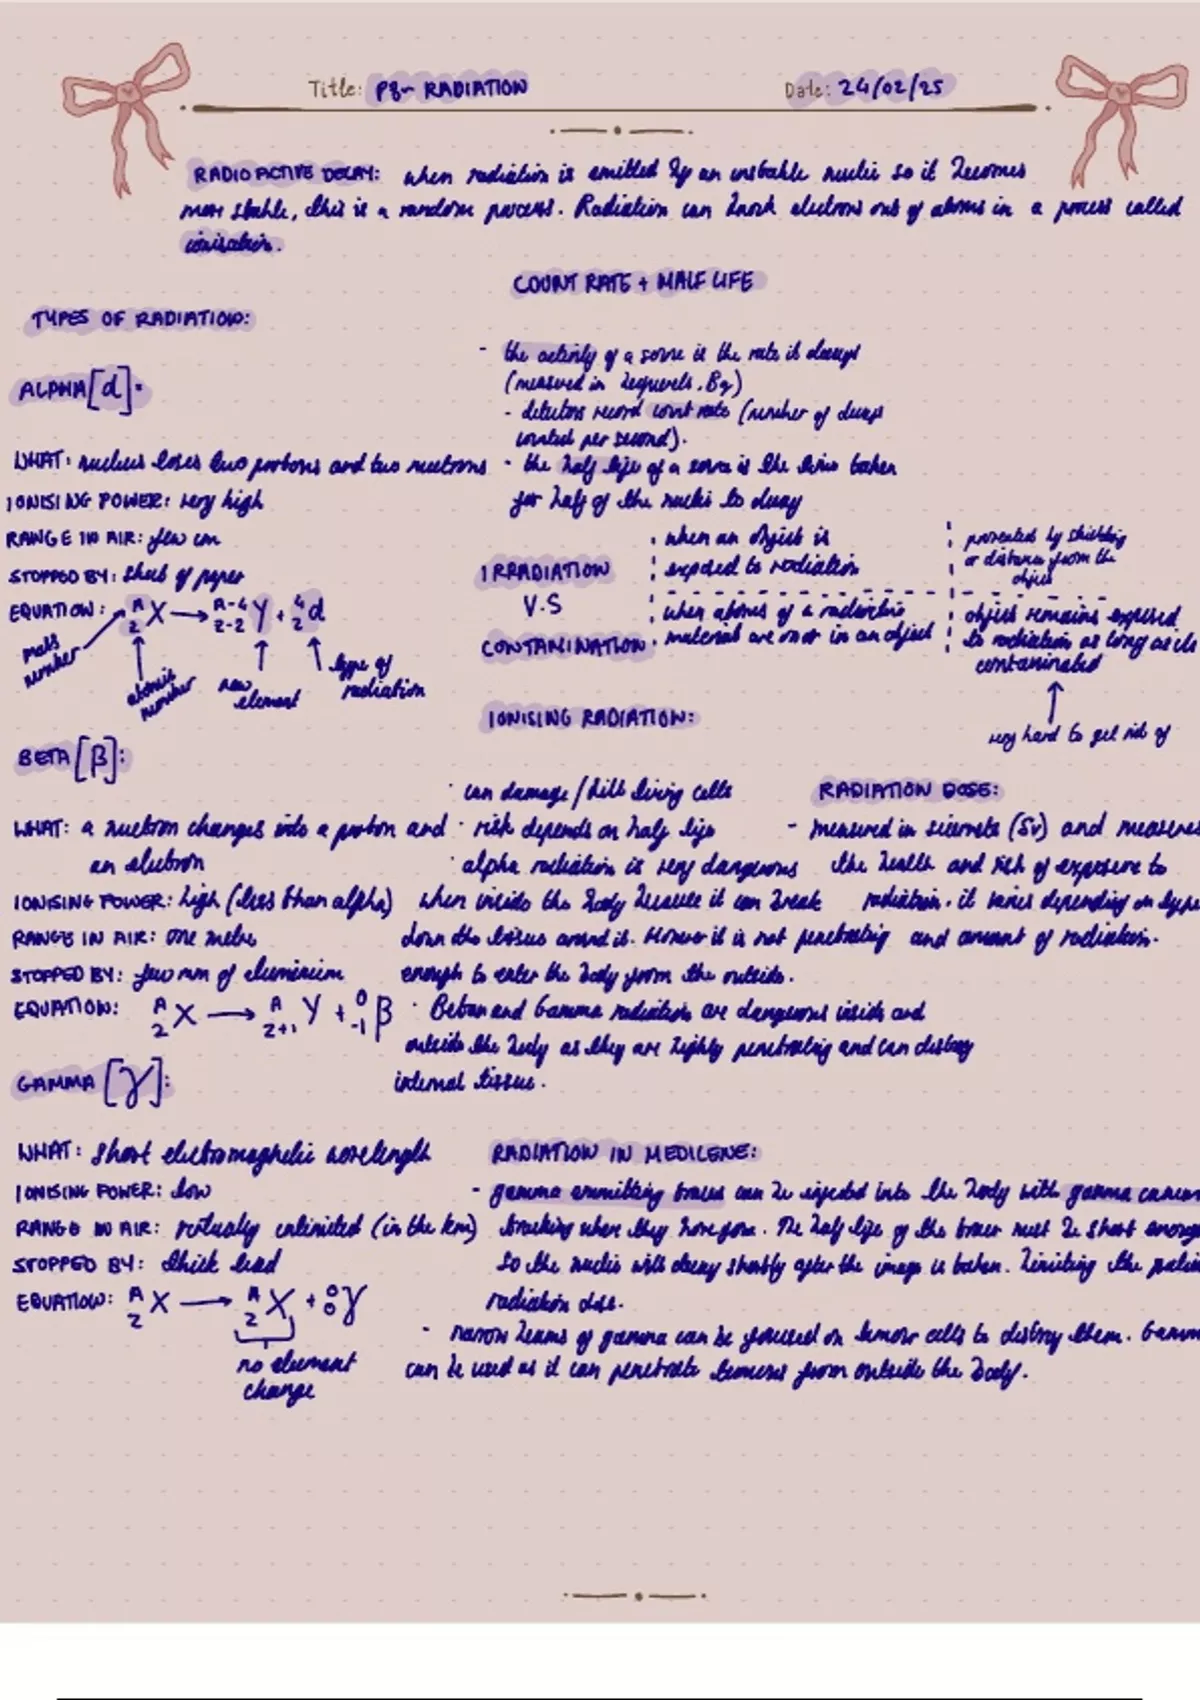 Title: P8~ RADIATION
Date: 24/02/25
RADIOACTIVE DECAY: when radiation is emitted by an unstable nuclei so it becomes
more stable, this is a random process. Radiation can knock electrons out of atoms in a process called
ionisation.
COUNT RATE + HALF LIFE
TYPES OF RADIATION:
- the activity of a source is the rate it decays
(measured in becquerels, Bq)
- detectors record count rate (number of decays
counted per second).
· the half life of a source is the time taken
for half of the nuclei to decay
ALPHA [α]:
WHAT: nucleus loses two protons and two neutrons
IONISING POWER: very high
RANGE IN AIR: few cm
STOPPED BY: sheet of paper
EQUATION: A Z X → A-4 Z-2 Y + 4 2 α
mass number
atomic number
new element
type of radiation
IRRADIATION
V.S
CONTAMINATION
· when an object is
exposed to radiation
prevented by shielding
or distance from the
object
· when atoms of a radioactive
material are on or in an object
object remains exposed
to radiation as long as its
contaminated
very hard to get rid of
IONISING RADIATION:
· can damage/kill living cells
· risk depends on half life
· alpha radiation is very dangerous
when inside the body because it can break
down the tissue around it. However it is not penetrating
enough to enter the body from the outside.
· Beta and Gamma radiation are dangerous inside and
outside the body as they are highly penetrating and can destroy
internal tissue.
RADIATION DOSE:
- measured in sieverts (Sv) and measures
the health and risk of exposure to
radiation. it varies depending on type
and amount of radiation.
BETA [β]:
WHAT: a neutron changes into a proton and
an electron
IONISING POWER: high (less than alpha)
RANGE IN AIR: one metre
STOPPED BY: few mm of aluminium
EQUATION: A Z X → A Z+1 Y + 0 -1 β
GAMMA [γ]:
WHAT: short electromagnetic wavelength
IONISING POWER: low
RANGE IN AIR: virtually unlimited (in the km)
STOPPED BY: thick lead
EQUATION: A Z X → A Z X + 0 0 γ
no element
change
RADIATION IN MEDICENE:
- gamma emmitting traces can be injected into the body with gamma cameras
tracking where they have gone. The half life of the tracer must be short enough
so the nuclei will decay shortly after the image is taken. Limiting the
radiation dose.
- narrow beams of gamma can be focused on tumour cells to destroy them.
can be used as it can penetrate tumours from outside the body.